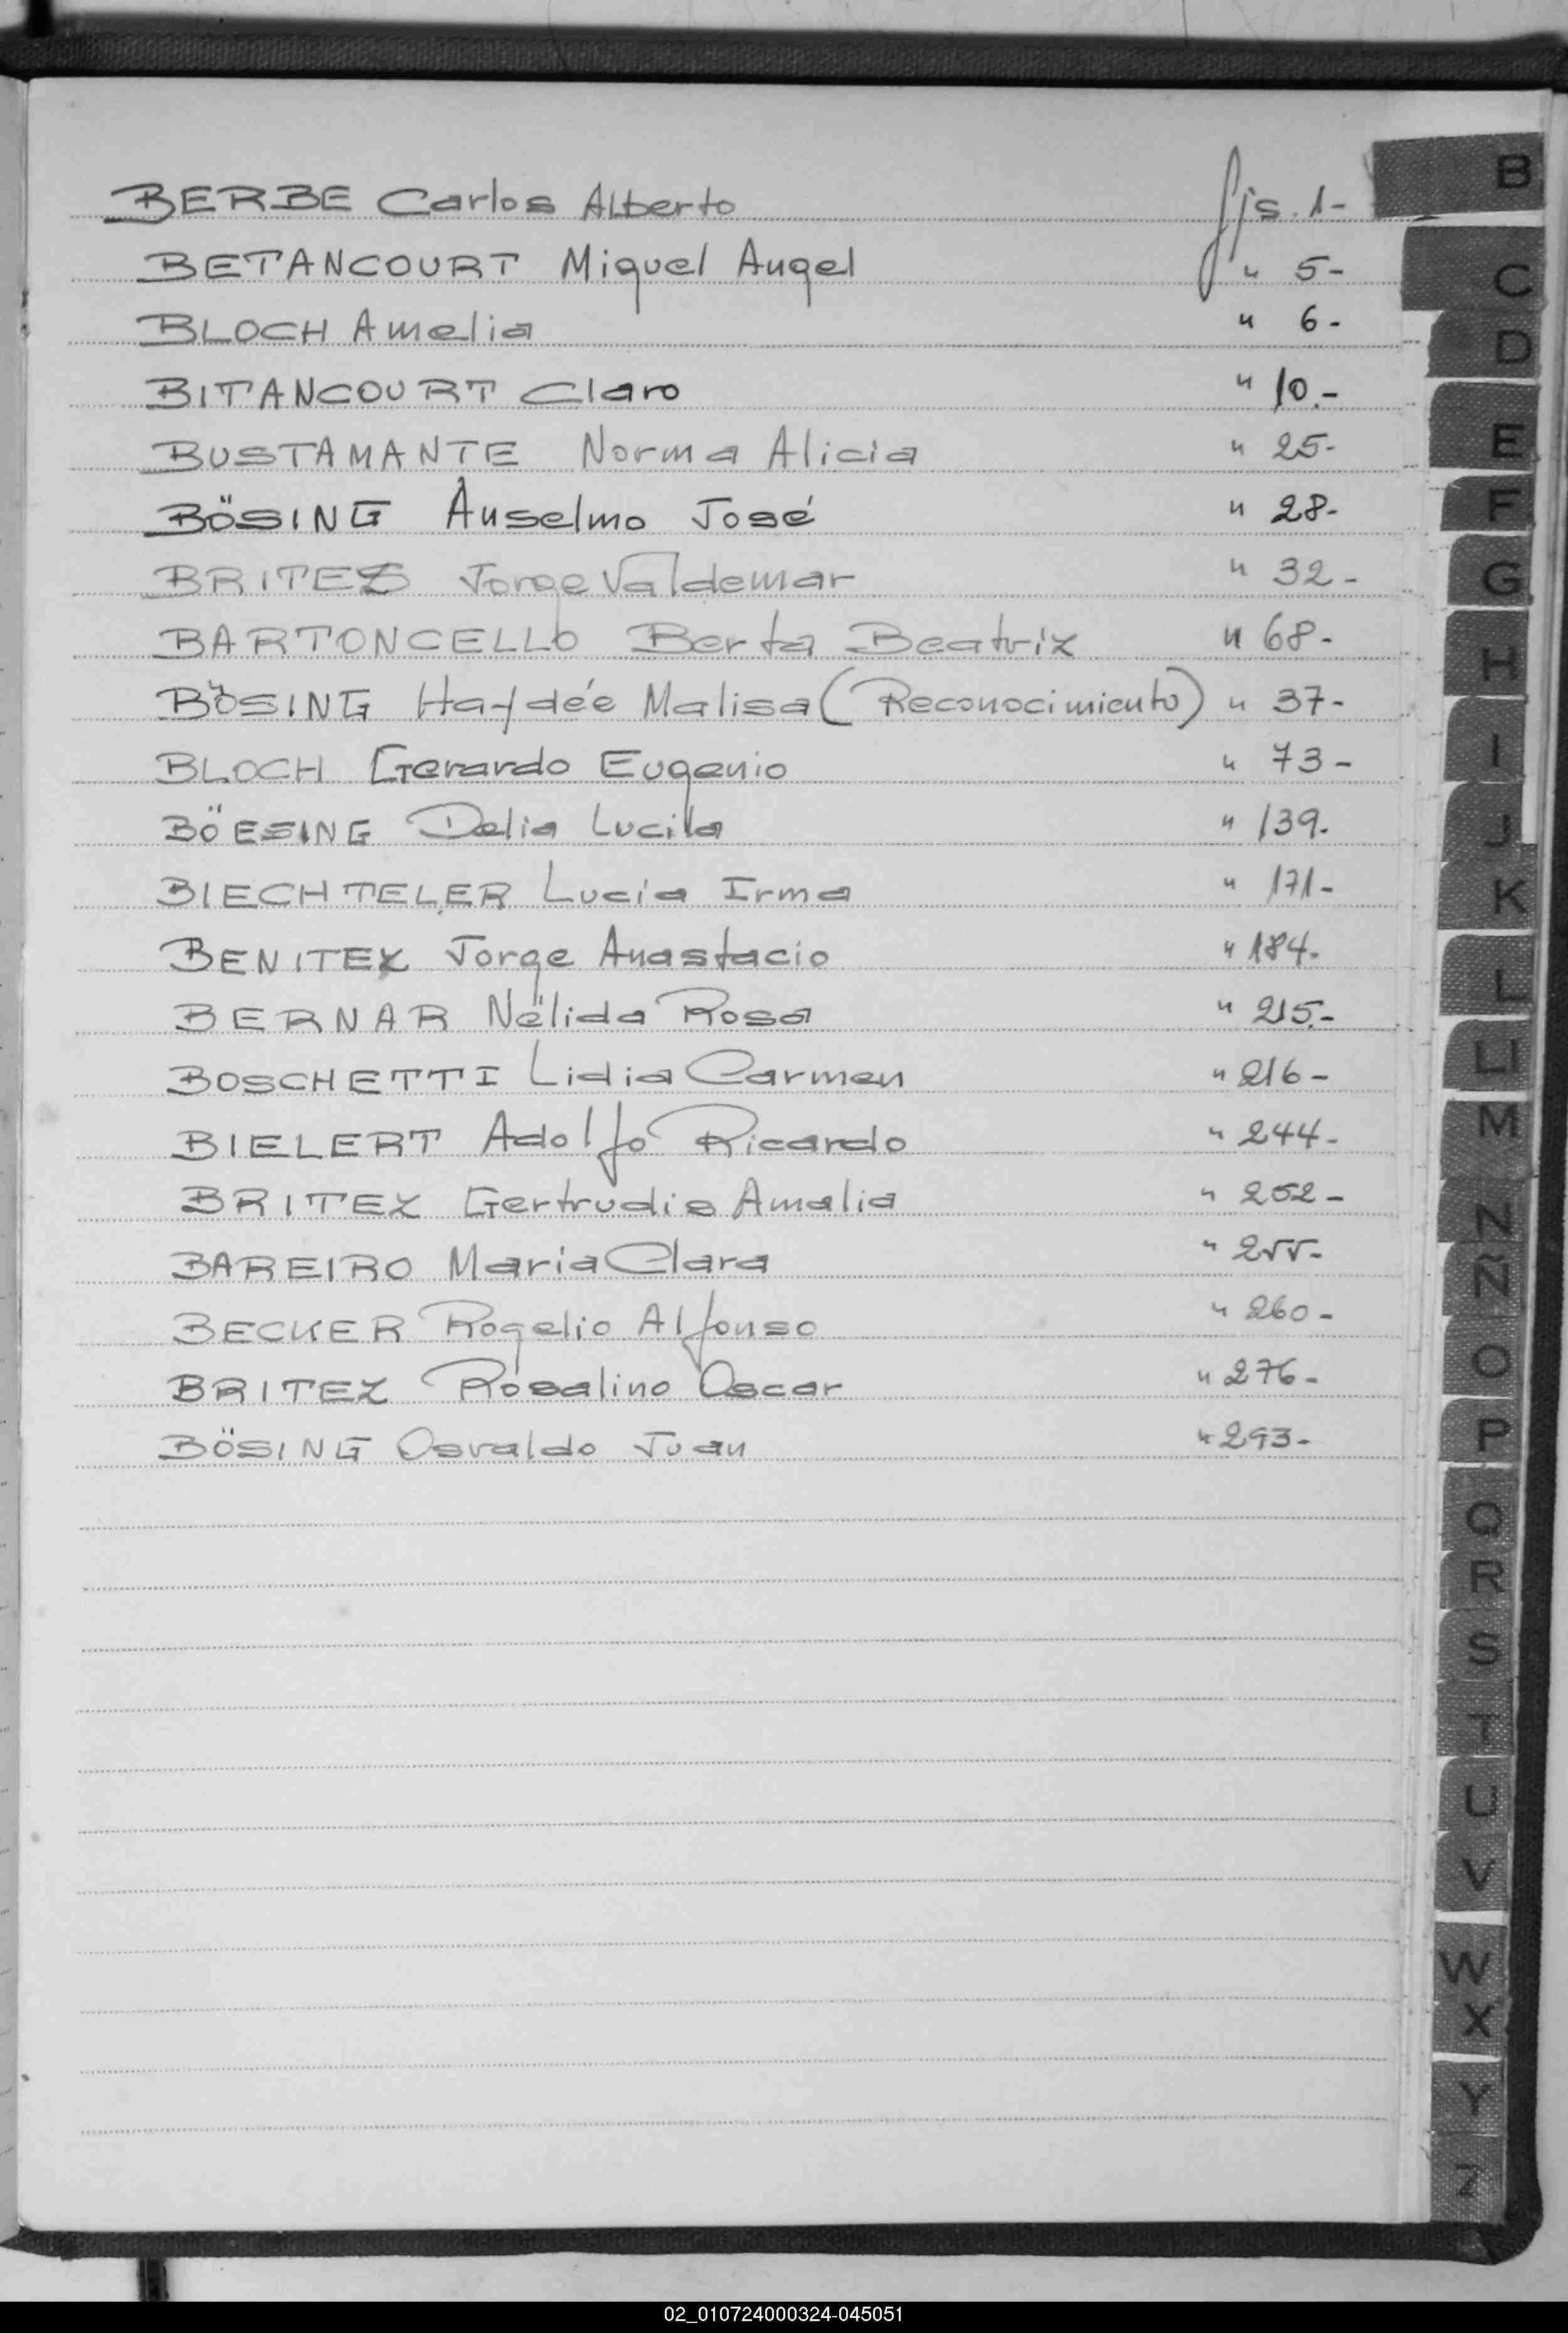 BERBE Carlos Alberto fjs. 1-
BETANCOURT Miguel Angel " 5-
BLOCH Amelia " 6-
BITANCOURT Claro " 10.-
BUSTAMANTE Norma Alicia " 25-
BÖSING Anselmo José " 28-
BRITES Jorge Valdemar " 32-
BARTONCELLO Berta Beatriz " 68-
BÖSING Haydée Malisa (Reconocimiento) " 37-
BLOCH Gerardo Eugenio " 73-
BÖESING Delia Lucila " 139.
BIECHTELER Lucía Irma " 171-
BENITEZ Jorge Anastacio " 184-
BERNAR Nélida Rosa " 215.-
BOSCHETTI Lidia Carmen " 216-
BIELERT Adolfo Ricardo " 244-
BRITEZ Gertrudis Amalia " 252-
BAREIRO Maria Clara " 255-
BECKER Rogelio Alfonso " 260-
BRITEZ Rosalino Oscar " 276-
BÖSING Osvaldo Juan " 293-
B
C
D
E
F
G
H
I
J
K
L
Ll
M
N
Ñ
O
P
Q
R
S
T
U
V
W
X
Y
Z
02_010724000324-045051